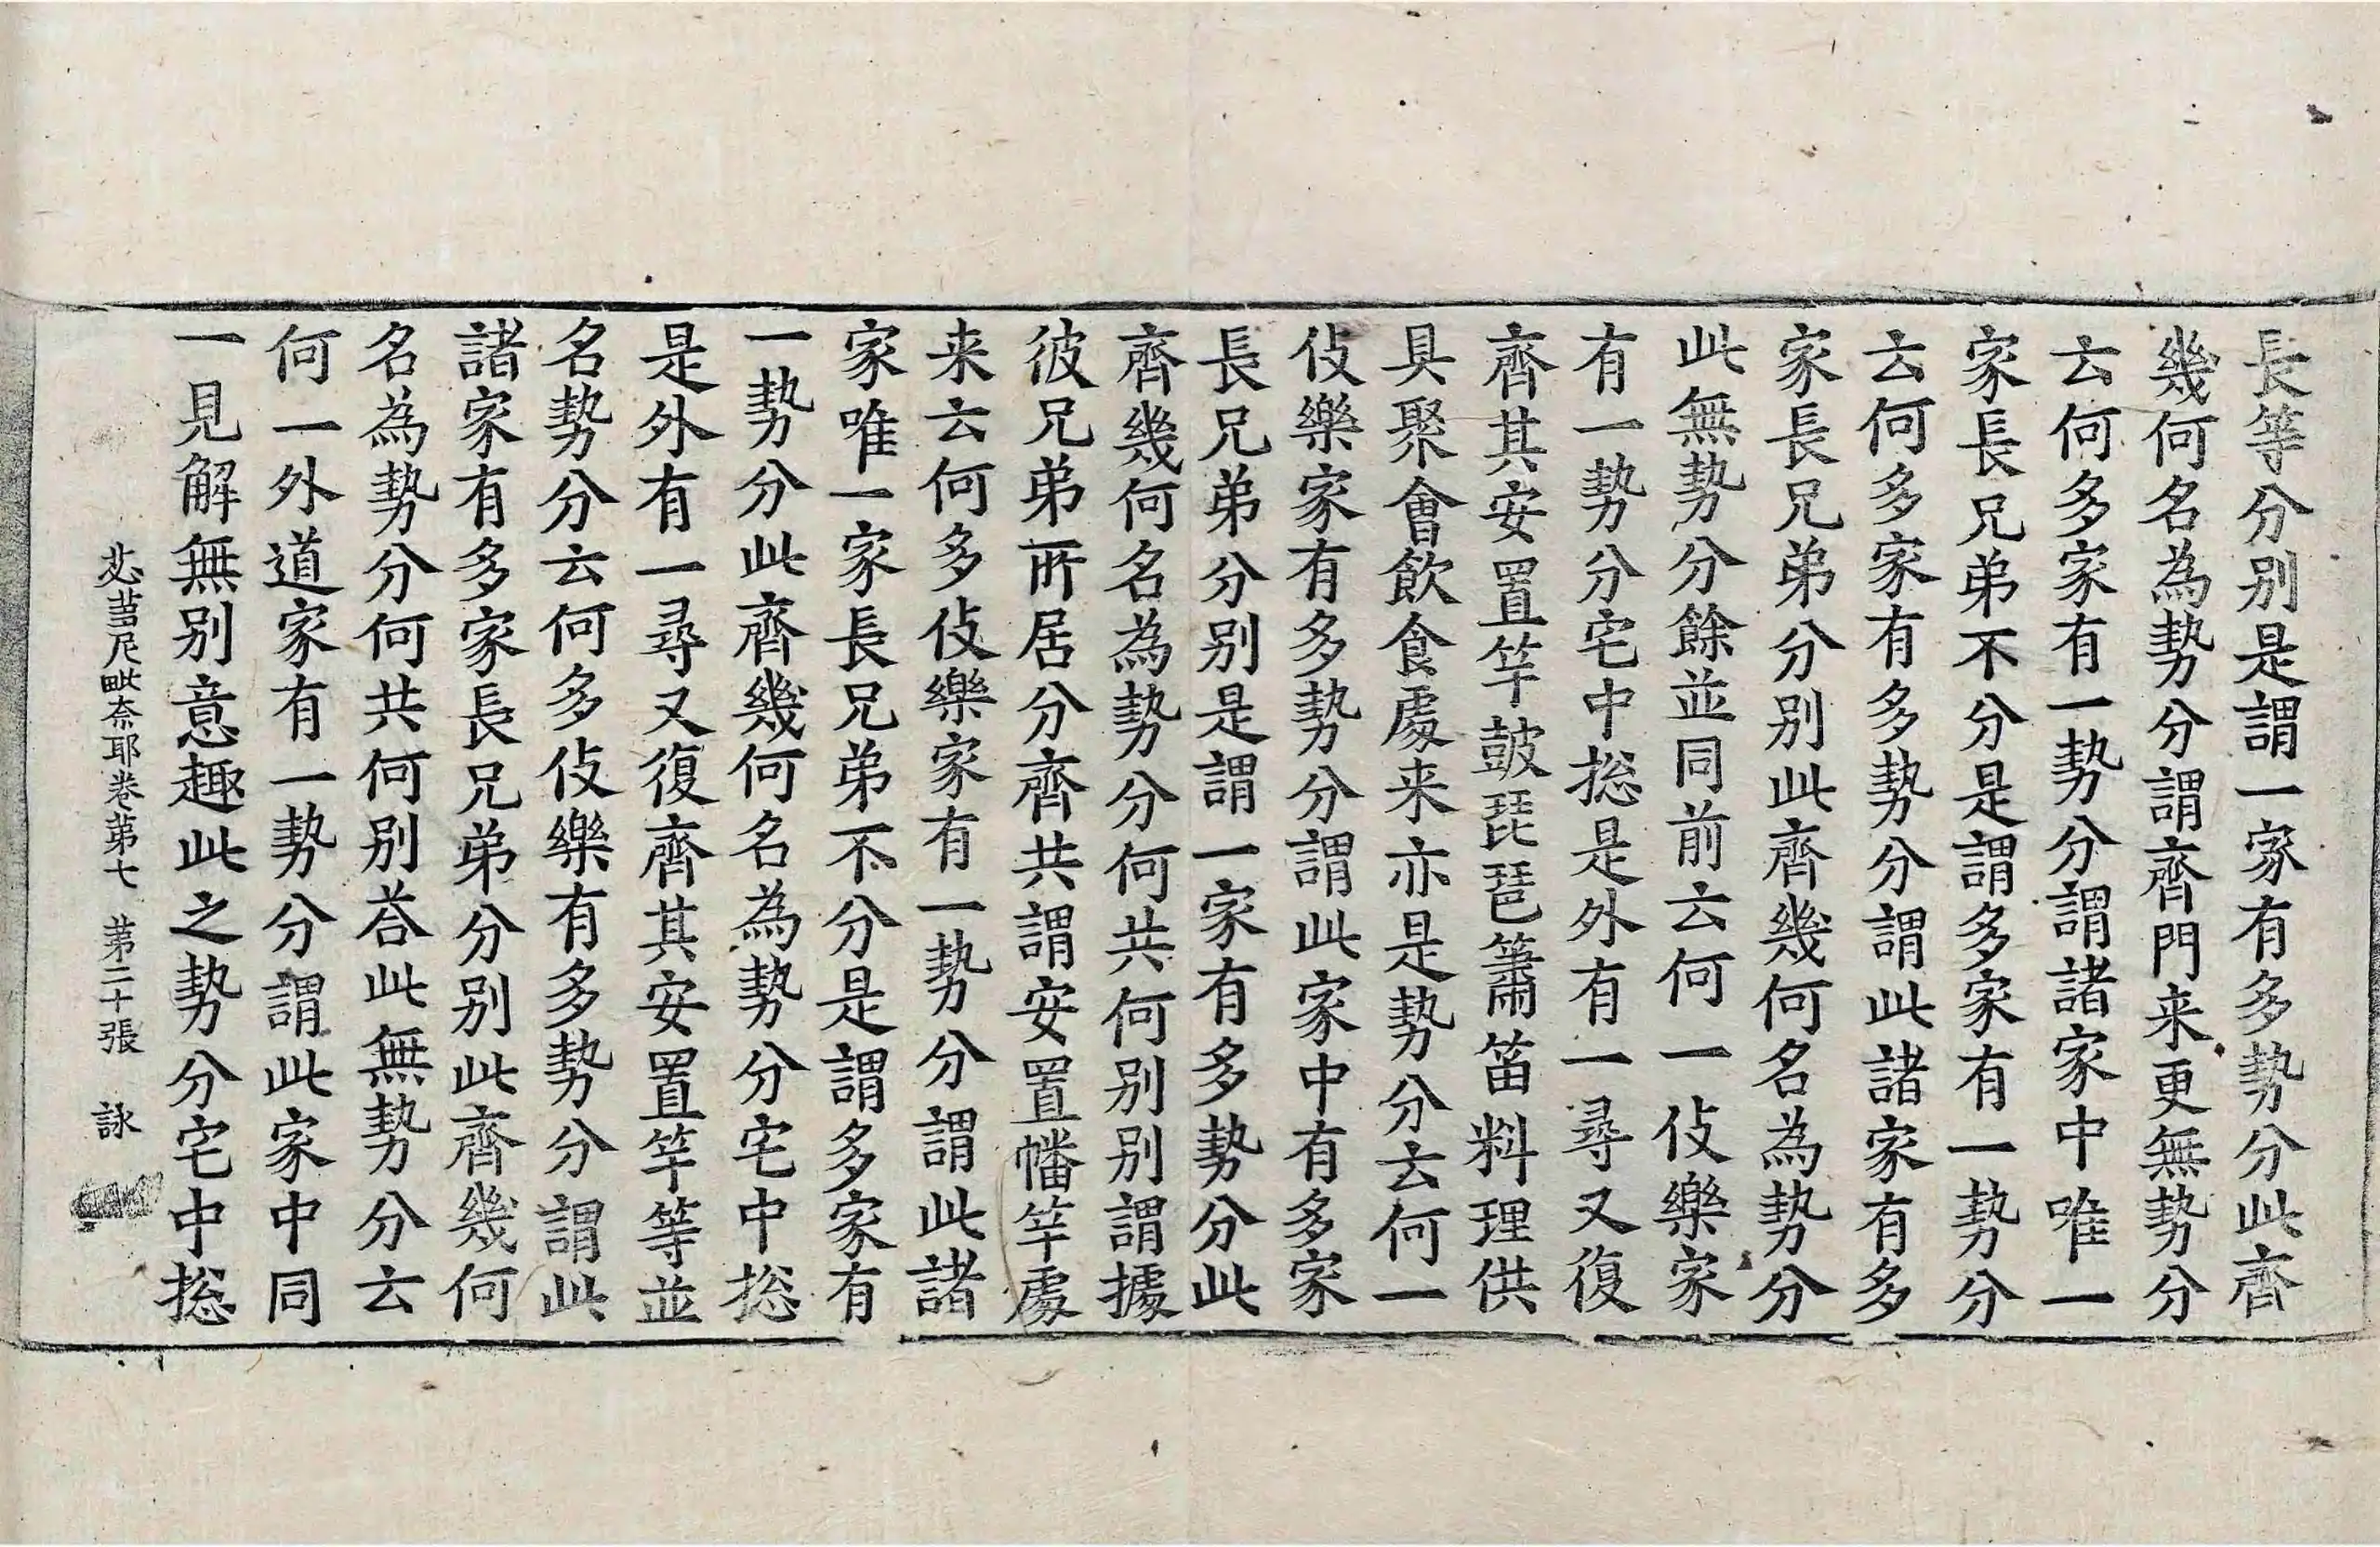 長等分別是謂一家有多勢分此齊
幾何名為勢分謂齊門来更無勢分
云何多家有一勢分謂諸家中唯一
家長兄弟不分是謂多家有一勢分
云何多家有多勢分謂此諸家有多
家長兄弟分別此齊幾何名為勢分
此無勢分餘並同前云何一伎樂家
有一勢分宅中揔是外有一尋又復
齊其安置竿皷琵琶簫笛料理供
具聚會飲食處来亦是勢分云何一
伎樂家有多勢分謂此家中有多家
長兄弟分別是謂一家有多勢分此
齊幾何名為勢分何共何別別謂據
彼兄弟所居分齊共謂安置幡竿處
来云何多伎樂家有一勢分謂此諸
家唯一家長兄弟不分是謂多家有
一勢分此齊幾何名為勢分宅中揔
是外有一尋又復齊其安置竿等並
名勢分云何多伎樂有多勢分謂此
諸家有多家長兄弟分別此齊幾何
名為勢分何共何別荅此無勢分云
何一外道家有一勢分謂此家中同
一見解無別意趣此之勢分宅中揔
苾蒭尼毗奈耶卷第七 第二十張 詠